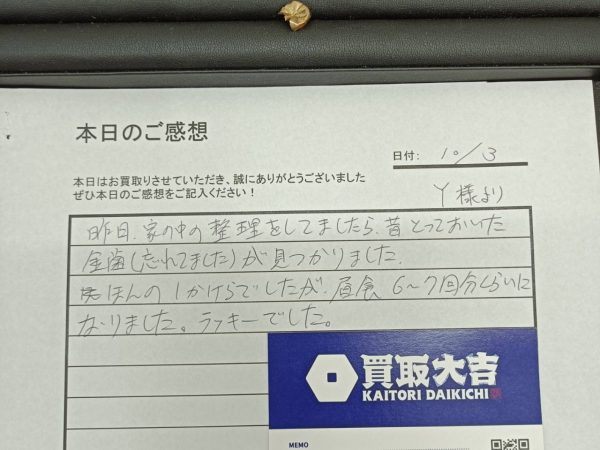 本日のご感想
日付: 10/3
本日はお買取りさせていただき、誠にありがとうございました
ぜひ本日のご感想をご記入ください！
Y様より
昨日、家の中の整理をしてましたら、昔とっておいた
金歯(忘れてました)が見つかりました。
ほんの1かけらでしたが、昼食6〜7回分くらいに
なりました。ラッキーでした。
買取大吉
KAITORI DAIKICHI
MEMO